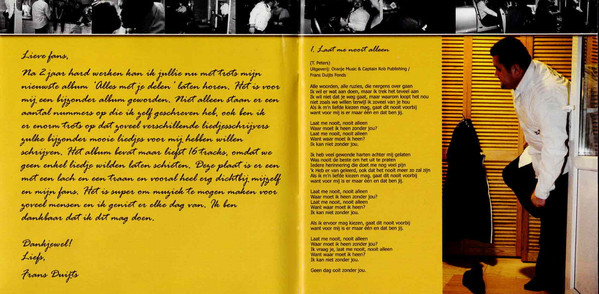 Lieve fans,
Na 2 jaar hard werken kan ik jullie nu met trots mijn
nieuwste album 'Alles met je delen' laten horen. Het is voor
mij een bijzonder album geworden. Niet alleen staan er een
aantal nummers op die ik zelf geschreven heb, ook ben ik
er enorm trots op dat zoveel verschillende liedjesschrijvers
zulke bijzonder mooie liedjes voor mij hebben willen
schrijven. Het album bevat maar liefst 16 tracks, omdat we
geen enkel liedje wilden laten schieten. Deze plaat is er een
met een lach en een traan en vooral heel erg dichtbij mijzelf
en mijn fans. Het is super om muziek te mogen maken voor
zoveel mensen en ik geniet er elke dag van. Ik ben
dankbaar dat ik dit mag doen.
Dankjewel!
Liefs,
Frans Duijts
1. Laat me nooit alleen
(T. Peters)
Uitgeverij: Oranje Music & Captain Rois Publishing /
Frans Duijts Fonds
Alle woorden, alle ruzies, die nergens over gaan
Ik wil er wat aan doen, maar ik trek het teveel aan
Ik wil niet dat je weg gaat, maar waarom loopt het nou
niet zoals we willen terwijl ik zoveel van je hou
Als ik m'n liefde kiezen mag, gaat dit nooit voorbij
want voor mij is er maar één en dat ben jij.
Laat me nooit, nooit alleen
Waar moet ik heen zonder jou?
Laat me nooit, nooit alleen
Want waar moet ik heen?
Ik kan niet zonder jou.
Ik heb veel gewonde harten achter mij gelaten
Was nooit de beste om het uit te praten
Iedere herinnering die doet me nog veel pijn
'k Heb er van geleerd, ook dat het nooit meer zo zal zijn
Als ik m'n liefde kiezen mag, gaat dit nooit voorbij
want voor mij is er maar één en dat ben jij.
Laat me nooit, nooit alleen
Waar moet ik heen zonder jou?
Laat me nooit, nooit alleen
Want waar moet ik heen?
Ik kan niet zonder jou.
Als ik ervoor mag kiezen, gaat dit nooit voorbij
want voor mij is er maar één en dat ben jij.
Laat me nooit, nooit alleen
Waar moet ik heen zonder jou?
Ik vraag je, laat me nooit, nooit alleen
Want waar moet ik heen?
Ik kan niet zonder jou.
Geen dag ooit zonder jou.